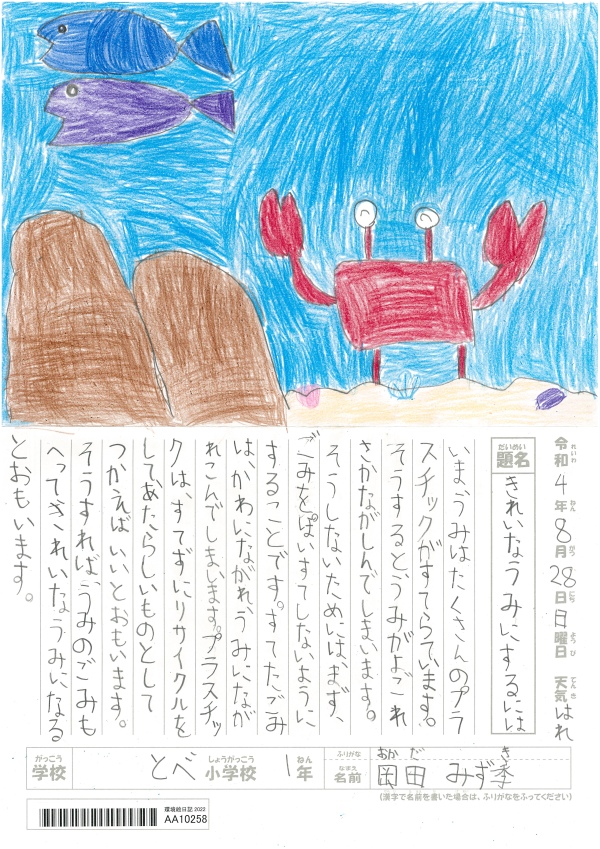 令和4年8月28日日曜日 天気はれ
れいわ ねん がつ にち ようび てんき
だいめい
題名 きれいなうみにするには
いまうみはたくさんのプラ
スチックがすてらています。
そうするとうみがよごれ
さかながしんでしまいます。
そうしないためには、まず、
ごみをぽいすてしないように
することです。すてたごみ
は、かわにながれ、うみになが
れこんでしまいます。プラスチッ
クは、すてずにリサイクルを
してあたらしいものとして
つかえばいいとおもいます。
そうすれば、うみのごみも
へってきれいなうみになる
とおもいます。
がっこう しょうがっこう ねん
学校 とべ 小学校 1年
ふりがな おかだ き
なまえ
名前 岡田 みず季
(漢字で名前を書いた場合は、ふりがなをふってください)
環境絵日記2022
AA10258